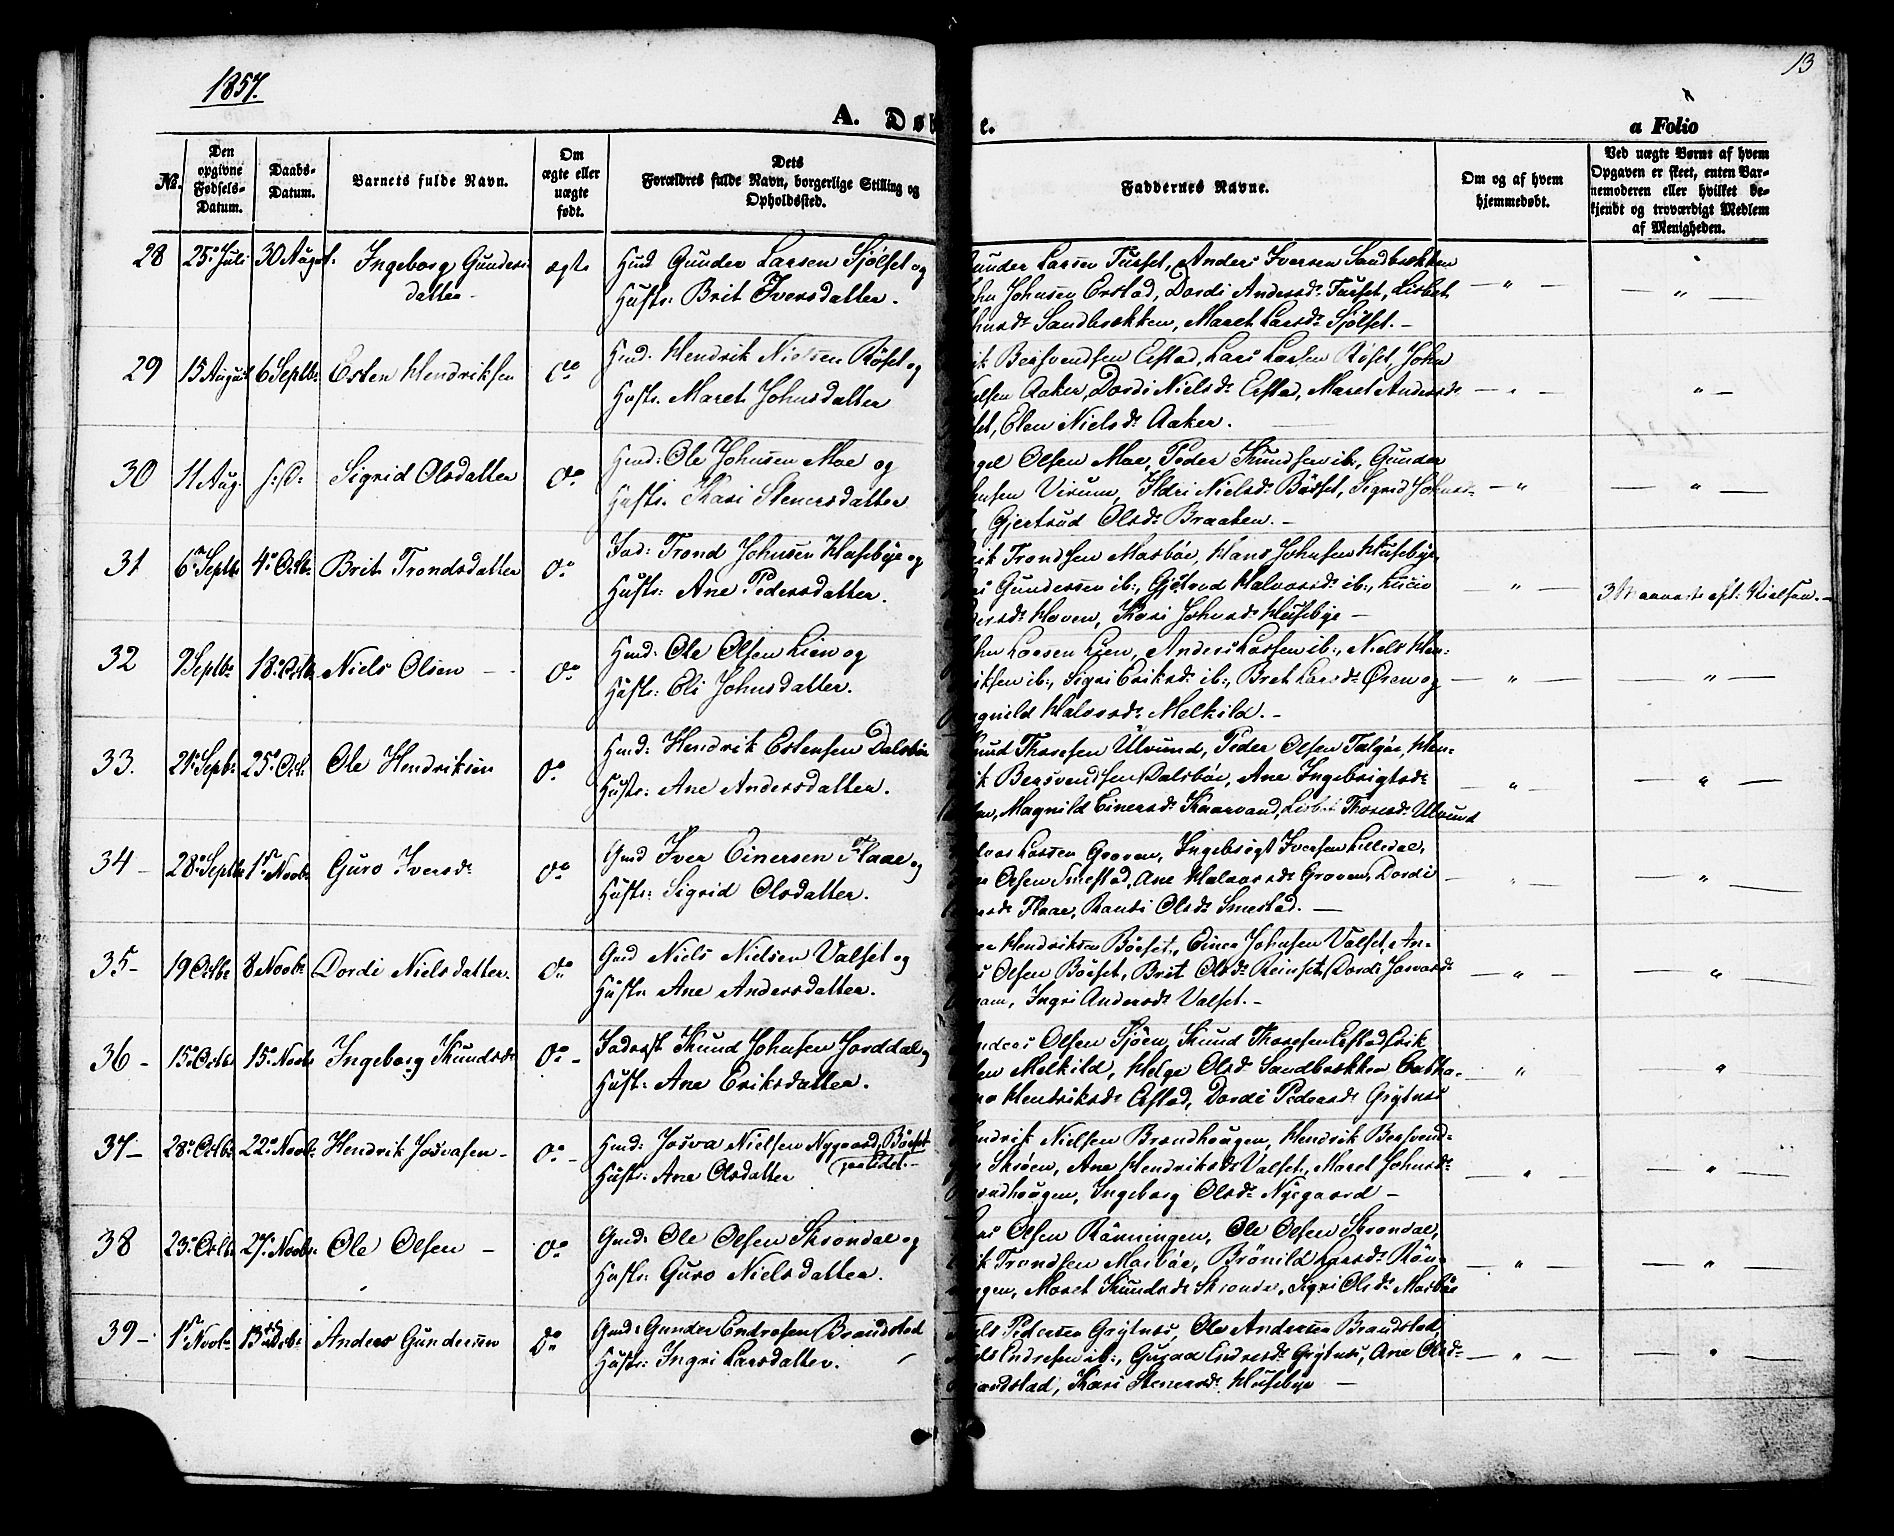 1857.
13
A. Døb
e.
a Folio
No.
Den opgivne Fødsels-Datum.
Daabs-Datum.
Barnets fulde Navn.
Om ægte eller uægte født.
Dets Forældres fulde Navn, borgerlige Stilling og Opholdssted.
Faddernes Navne.
Om og af hvem hjemmedøbt.
Ved uægte Børns af hvem Opgaven er skeet, enten Barnemoderen eller hvilket bekjendt og troværdigt Medlem af Menigheden.
28 25. Juli 30 August. Ingeborg Gunders- ægte Hmd Gunder Larsen Sjølset og
datter - Hustr: Brit Iversdatter.
Gunder Larsen Tusset, Anders Iversen Sandbrekken
John Johnsen Erstad, Dordi Andersd: Tusset, Lisbet
Sandbrekken, Maret Larsd: Sjølset. -
29 13 August 6 Septbr Esten Hendriksen do Hmd: Hendrik Nielsen Røset og
Hustr. Maret Johnsdatter
Bersvendsen Erstad, Lars Larsen Røset, John
Aaker, Dordi Nielsd: Erstad, Maret Andersd:
Elen Nielsd: Aaker.
30 11 Aug. s: D: Sigrid Olsdatter do Hmd: Ole Johnsen Moe og
Hustr. Kari Stenersdatter
Olsen Moe, Peder Knudsen ib:, Gunder
Virum, Ildri Nielsd: Børset, Sigrid Johnsd:
Gjertrud Olsd: Braaten. -
31 6 Septbr 4. Octb: Brit Trondsdatter do Trond Johnsen Husebye og
Hustr: Ane Pedersdatter.
Trondsen Masbøe, Hans Johnsen Husebye
Gundersen ib:, Halvorsd: ib:,
Hoven, Kari Johnsd: Husebye -
3 Maaneder eft:
32 9 Septbr 18. Octb Niels Olsen - - do Hmd: Ole Olsen Lien og
Hustr: Eli Johnsdatter.
John Larsen Lien, Anders Larsen ib:, Niels Hen-
driksen ib:, Sigri Eriksd: ib:, Bret Larsd: Øren og
Magnild Halvorsd: Melkild. -
33. 21. Septbr 25. Oct. Ole Hendriksen do Hmd: Hendrik Estensen Dalsbøe
Hustr: Ane Andersdatter.
Knud Thoresen Ulvund, Peder Olsen Talgøe, Hen-
drik Bersvendsen Dalsbøe, Ane Ingebrigtsd:
Magnild Einersd: Kaarvand, Lisbet Thoresd: Ulvund
34 - 28. Septbr 1ste Novbr Guro Iversd: do Gmd Iver Einersen Flaae og
Hustr: Sigrid Olsdatter.
Halvor Larsen Groven, Ingebrigt Iversen Lilledal,
Olsen Smestad, Ane Halvorsd: Groven, Dordi
Flaae, Randi Olsd: Smestad. -
35 - 19 Octbr 8 Novbr Dordi Nielsdatter. do Gmd Niels Nielsen Valset og
Hustr Ane Andersdatter.
Hendriksen Børset, Einer Johnsen Valset, An-
Olsen Børset, Brit Olsd: Reinset, Dordi
Ingri Andersd: Valset. -
36 - 15. Octbr 15. Novbr Ingeborg Knudsd: do - Knud Johnsen Jorddal og
Hust: Ane Eriksdatter.
Anders Olsen Sjøen, Knud Thoresen Erstad, Erik
Melkild, Helge Olsd Sandbrekken Catha-
Hendriksd: Erstad, Dordi Pedersd: Grytnes
37 - 28. Octbr 22. Novbr. Hendrik Josvasen - do - Hmd: Josva Nielsen Nygaard, Børset
Hustr: Ane Olsdatter
Hendrik Nielsen Brandhougen, Hendrik Bersvend-
Skrøen, Ane Hendriksd: Valset, Maret Johnsd:
Brandhougen, Ingeborg Olsd: Nygaard -
38 23. Octbr 27. Novbr. Ole Olsen - do Gmd: Ole Olsen Skrondal og
Hustr: Guro Nielsdatter.
Olsen Rønningen, Ole Olsen Skrondal,
Trondsen Masbøe, Brønild Larsd: Røn-
ningen, Maret Knudsd: Skrondal, Sigri Olsd: Masbøe
39 - 1ste Novbr Anders Gundersen do Gmd: Gunder Endresen Brandstad
Hustr: Ingri Larsdatter.
Niels Pedersen Grytnes, Ole Andersen Brandstad,
Niels Endresen ib:, Endresd: Grytnes, Ane Olsd:
Brandstad, Kari Stenersd: Husebye -